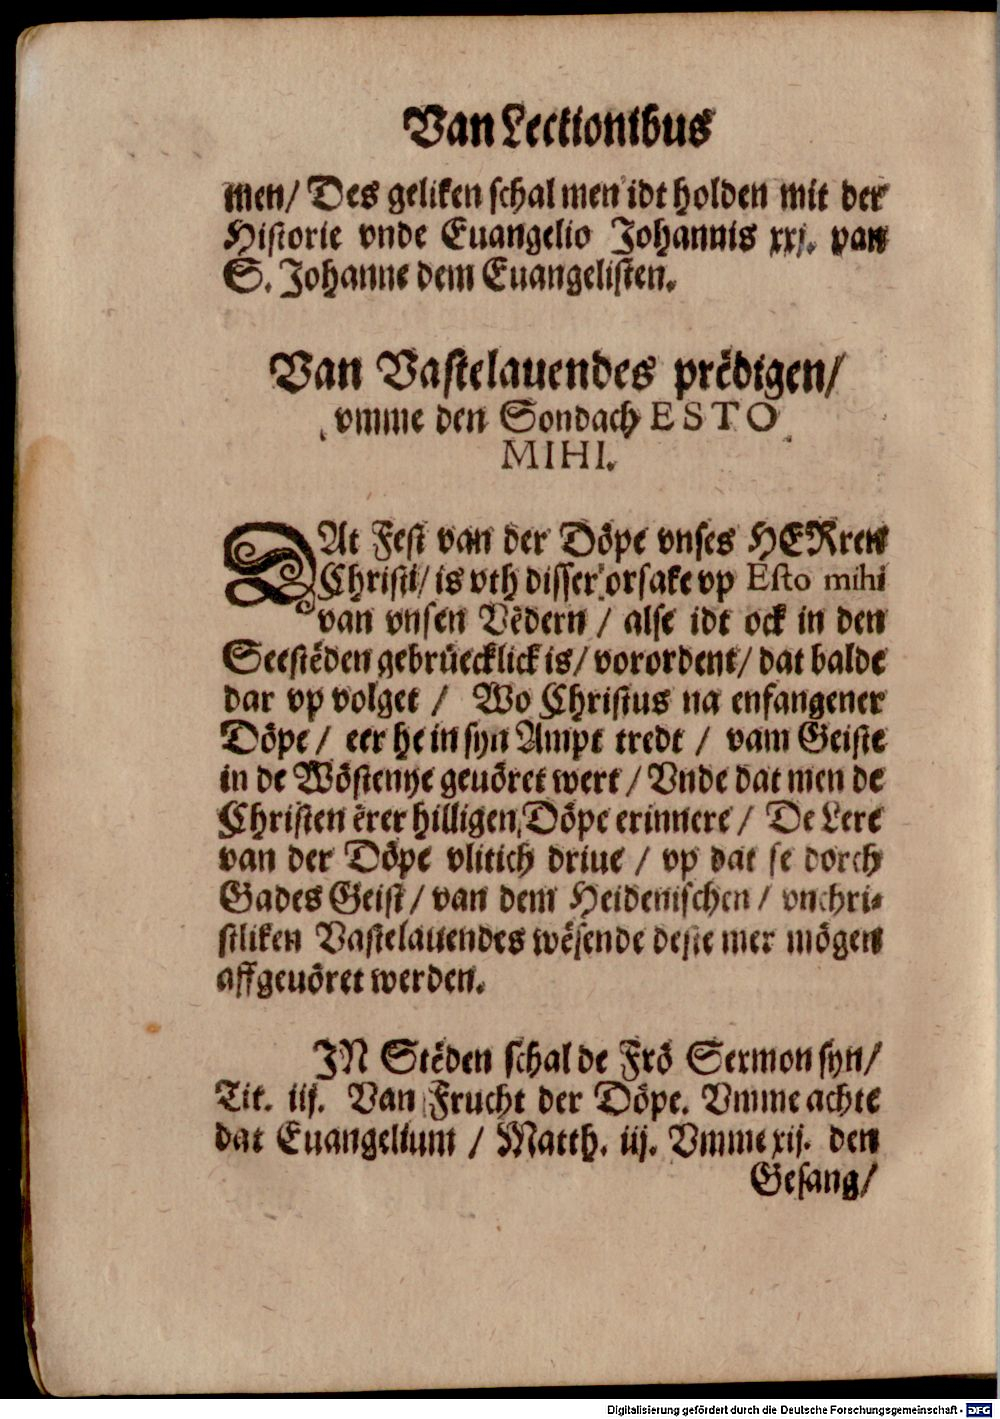 Van Lectionibus
men/ Des geliken schal men idt holden mit der
Historie vnde Euangelio Johannis xxj. van
S. Johanne dem Euangelisten.
Van Vastelauendes prëdigen/
vmme den Sondach ESTO
MIHI.
DAt Fest van der Döpe vnses HERren
Christi/ is vth disser orsake vp Esto mihi
van vnsen Vëdern / alse idt ock in den
Seestëden gebrüecklick is/ vorordent/ dat balde
dar vp volget / Wo Christus na enfangener
Döpe / eer he in syn Ampt tredt / vam Geiste
in de Wöstenye geuöret wert / Vnde dat men de
Christen ërer hilligen Döpe erinnere / De Lere
van der Döpe vlitich driue / vp dat se dorch
Gades Geist / van dem Heidenischen / vnchri-
stliken Vastelauendes wësende deste mer mögen
affgeuöret werden.
JN Stëden schal de Frö Sermon syn/
Tit. iij. Van Frucht der Döpe. Vmme achte
dat Euangelium / Matth. iij. Vmme xij. den
Gesang/
Digitalisierung gefördert durch die Deutsche Forschungsgemeinschaft - DFG